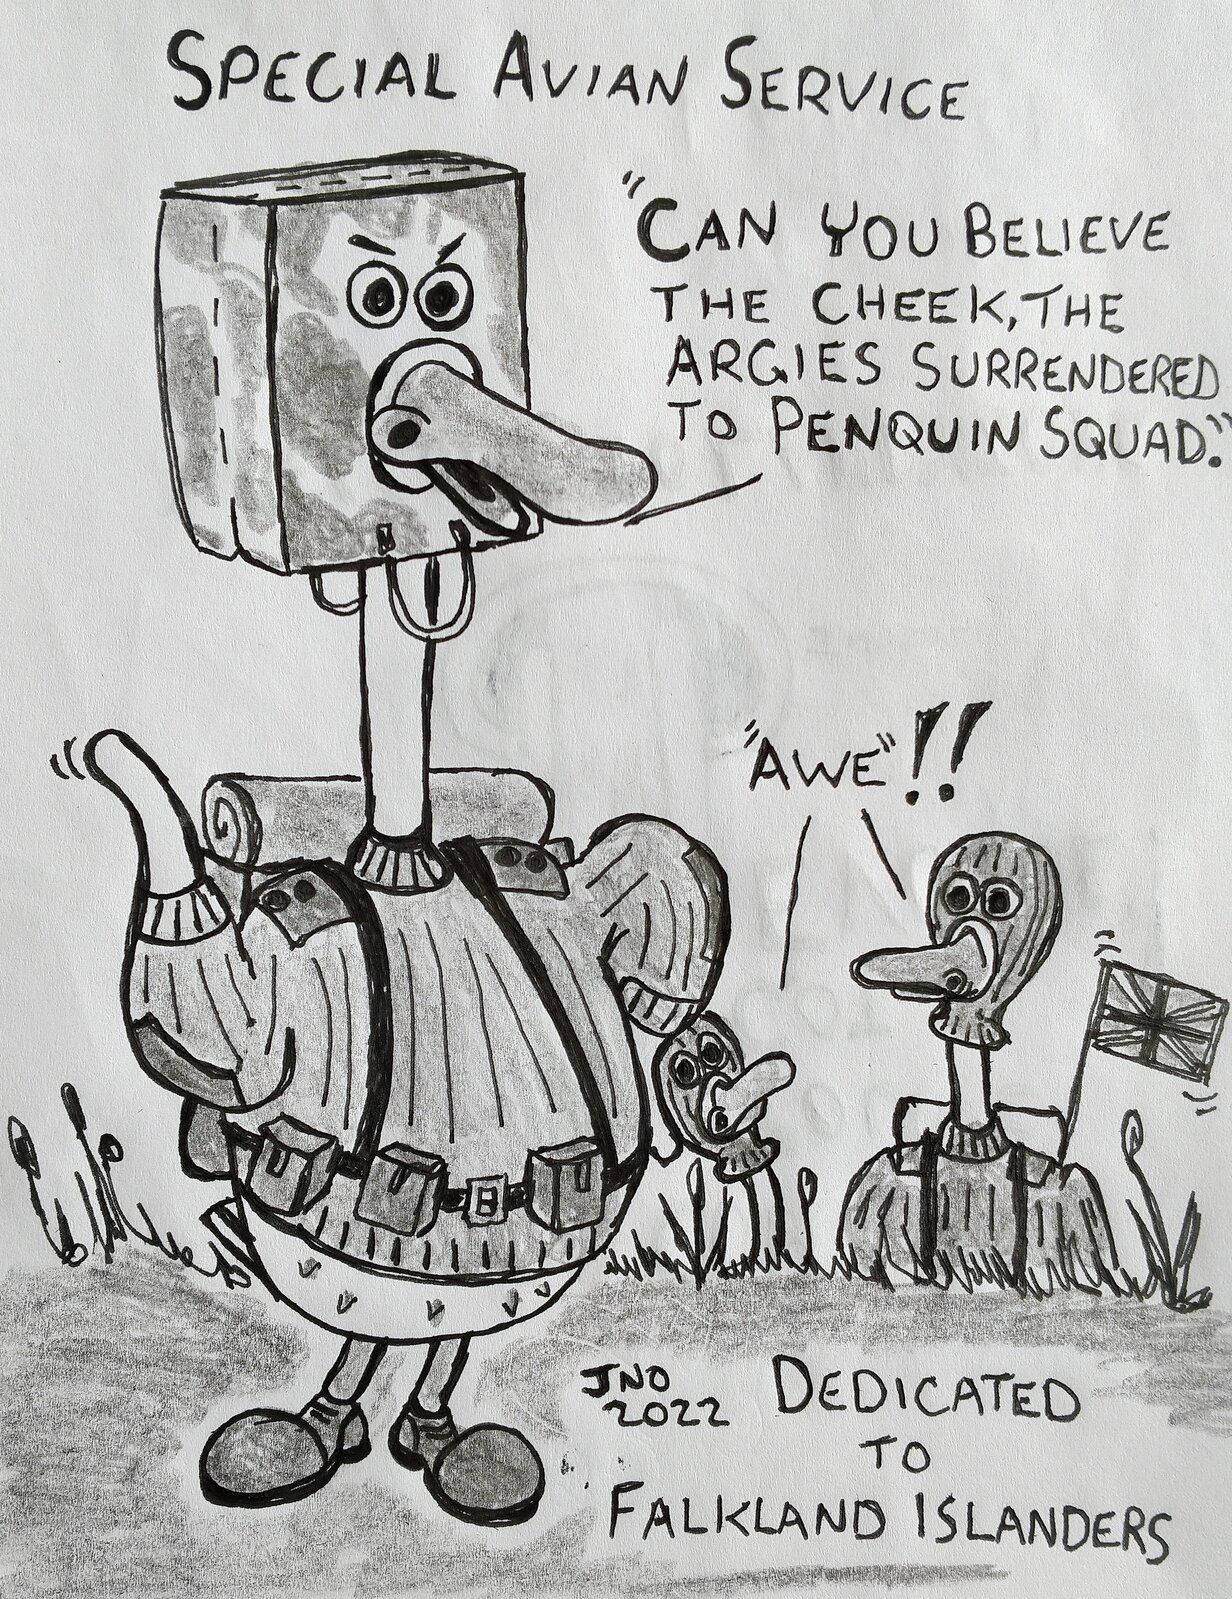 SPECIAL AVIAN SERVICE
"CAN YOU BELIEVE
THE CHEEK, THE
ARGIES SURRENDERED
TO PENQUIN SQUAD."
"AWE"!!
JNO
2022
DEDICATED
TO
FALKLAND ISLANDERS